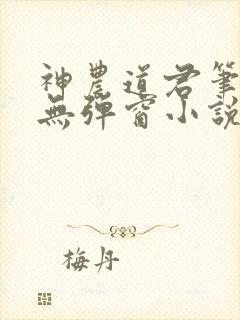 神農道君筆
無彈窗小說
梅丹